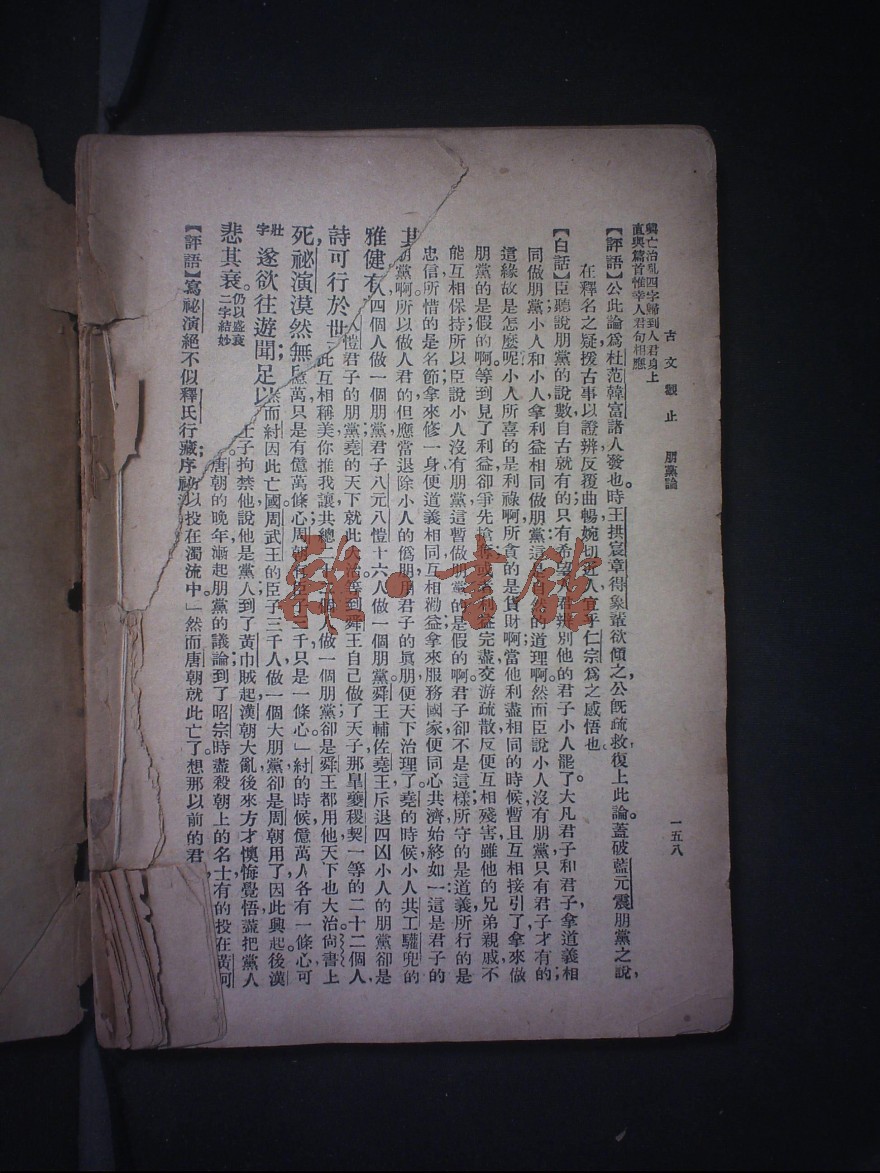 古文觀止　朋黨論
一五八
興亡治亂四字歸到人君身上
直與篇首惟幸人君句相應
【評語】公此論爲杜范韓富諸人發也。時王拱宸章得象輩欲傾之，公旣疏救，復上此論。蓋破藍元震朋黨之說，
在釋名之疑，援古事以證辨，反覆曲暢，婉切近人，宜乎仁宗爲之感悟也。
【白話】臣聽說朋黨的說數，自古就有的；只有希望人君辨別他的君子小人罷了。大凡君子和君子，拿道義相
同做朋黨；小人和小人，拿利益相同做朋黨；這是自然的道理啊。然而臣說小人沒有朋黨，只有君子才有的；
這緣故是怎麼呢？小人所喜的是利祿啊，所貪的是貨財啊；當他利盡相同的時候，暫且互相接引了，拿來做
朋黨的，是假的啊。等到見了利益，卻爭先搶奪；或者利益完盡，交游疏散，反便互相殘害；雖他的兄弟親戚，不
能互相保持。所以臣說小人沒有朋黨，這暫做朋黨的，是假的啊。君子卻不是這樣，所守的是道義，所行的是
忠信，所惜的是名節；拿來修一身，便道義相同，互相勸益；拿來服務國家，便同心共濟，始終如一；這是君子的
朋黨啊。所以做人君的，但應當退除小人的僞朋，用君子的眞朋，便天下治理了。堯的時候，小人共工驩兜的
四個人做一個朋黨，君子八元八愷十六人做一個朋黨。舜王輔佐堯王，斥退四凶小人的朋黨，卻是
愷君子的朋黨，堯的天下就此大治。等到舜王自己做了天子，那臯夔稷契一等的二十二個人，
此互相稱美，你推我讓，共總二十二個人，做一個朋黨，卻是舜王都用他，天下也大治。尙書上
萬，只是有億萬條心；周朝有臣子三千，只是一條心。」紂的時候，億萬人各有一條心，可
然而紂因此亡國。周武王的臣子，三千人做一個大朋黨，卻是周朝用了因此興起。後漢
士子，拘禁他，說他是黨人；到了黃巾賊起，漢朝大亂，後來方才懊悔覺悟，盡把黨人
唐朝的晚年，漸起朋黨的議論；到了昭宗時，盡殺朝上的名士，有的投在黃河
以投在濁流中。」然而唐朝就此亡了。想那以前的君
其
雅健有
詩可行於世
死，祕演漠然無
壯字
遂欲往遊，聞足以
悲其衰。仍以盛衰二字結妙
【評語】寫祕演絕不似釋氏行藏，序
雜·書館